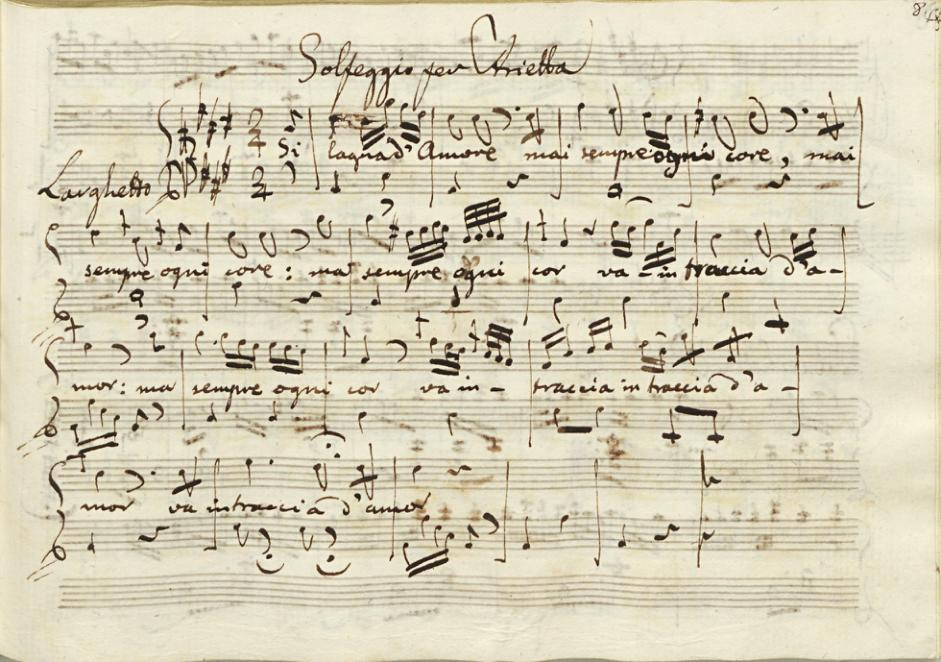 Solfeggio per Arietta
Si lagna d'Amore mai sempre ogni core, mai
Larghetto
sempre ogni core: ma sempre ogni cor va-in traccia d'a-
mor: ma sempre ogni cor va in- traccia in traccia d'a-
mor va in traccia d'amor